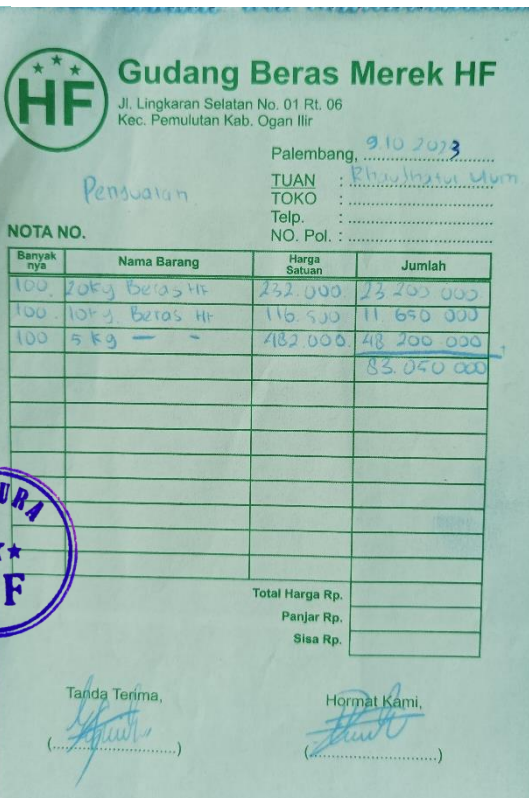 HF
Gudang Beras Merek HF
Jl. Lingkaran Selatan No. 01 Rt. 06
Kec. Pemulutan Kab. Ogan Ilir
Palembang, 9.10 2023
TUAN :
TOKO :
Telp. :
NO. Pol. :
Penjualan
NOTA NO.
Banyak nya Nama Barang Harga Satuan Jumlah
100. 20kg Beras HF 232.000 23 200 000
100. 10kg Beras HF 116.500 11 650 000
100 5 kg — - 482.000. 48 200 000
83.050 000
URA
F
Total Harga Rp.
Panjar Rp.
Sisa Rp.
Tanda Terima, Hormat Kami,
(........................) (........................)